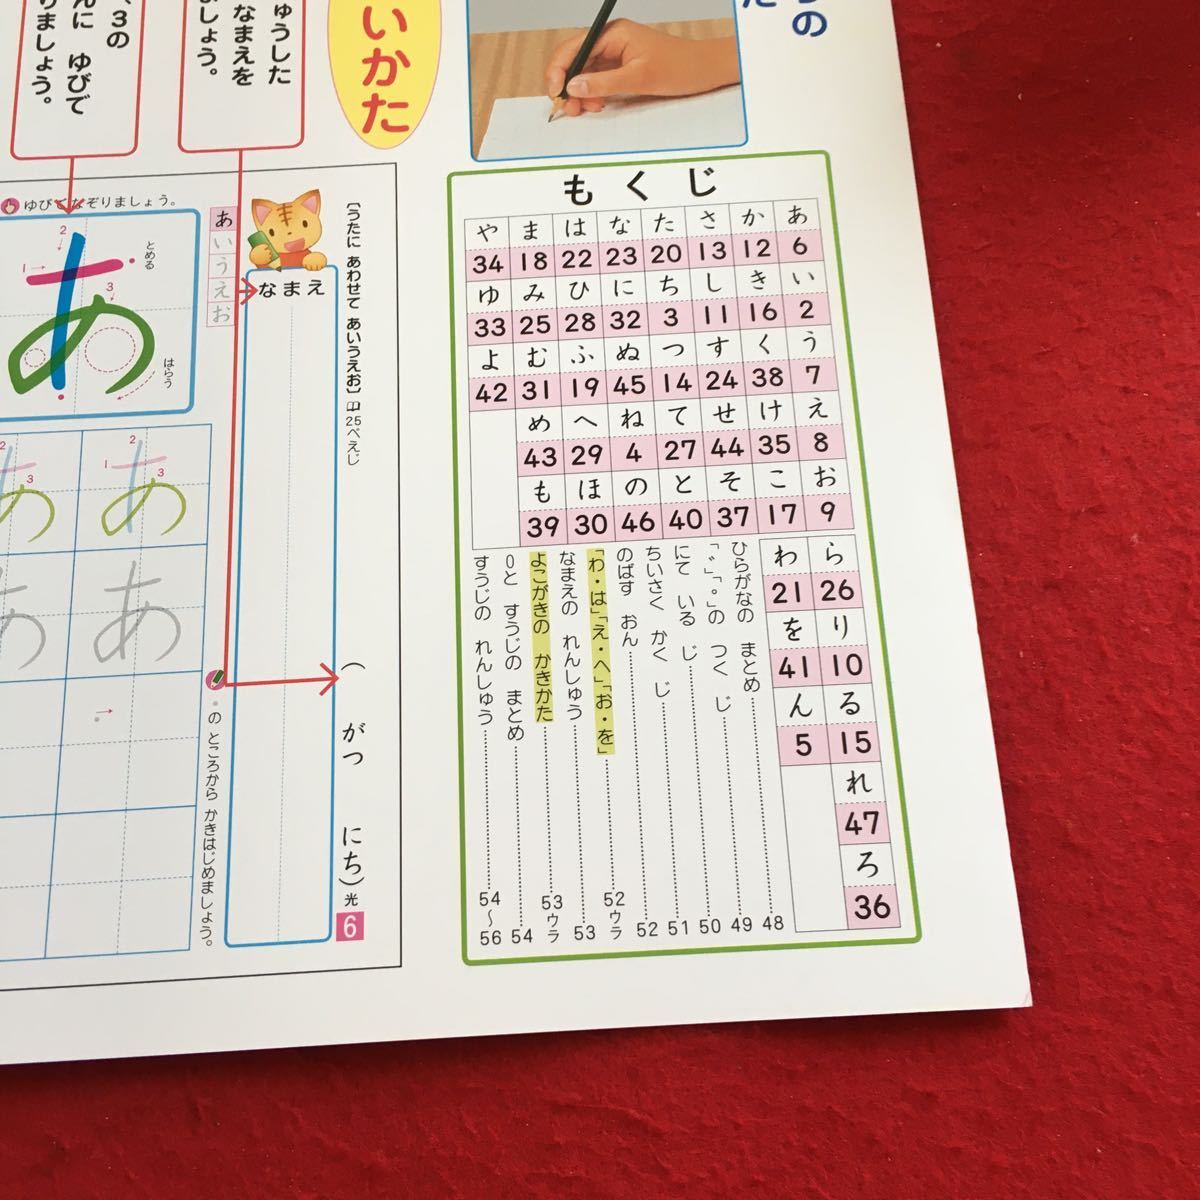 もくじ
あ か さ た な は ま や
6 12 13 20 23 22 18 34
い き し ち に ひ み ゆ
2 16 11 3 32 28 25 33
う く す つ ぬ ふ む よ
7 38 24 14 45 19 31 42
え け せ て ね へ め
8 35 44 27 4 29 43
お こ そ と の ほ も
9 17 37 40 46 30 39
ら わ
26 21
り を
10 41
る ん
15 5
れ
47
ろ
36
ひらがなの まとめ 48
「゛」「゜」の つく じ 49
にて いる じ 50
ちいさく かく じ 51
のばす おん 52
「わ・は」「え・へ」「お・を」 52ウラ
なまえの れんしゅう 53
よこがきの かきかた 53ウラ
0と すうじの まとめ 54
すうじの れんしゅう 54～56
いかた
ゅうした
なまえを
ましょう。
、3の
んに ゆびで
りましょう。
〔うたに あわせて あいうえお〕 25ぺえじ
( がつ にち)
光
6
なまえ
あいうえお
ゆびでなぞりましょう。
あ
1
2
3
とめる
はらう
あ
1
2
3
あ
2
3
あ
あ
の ところから かきはじめましょう。